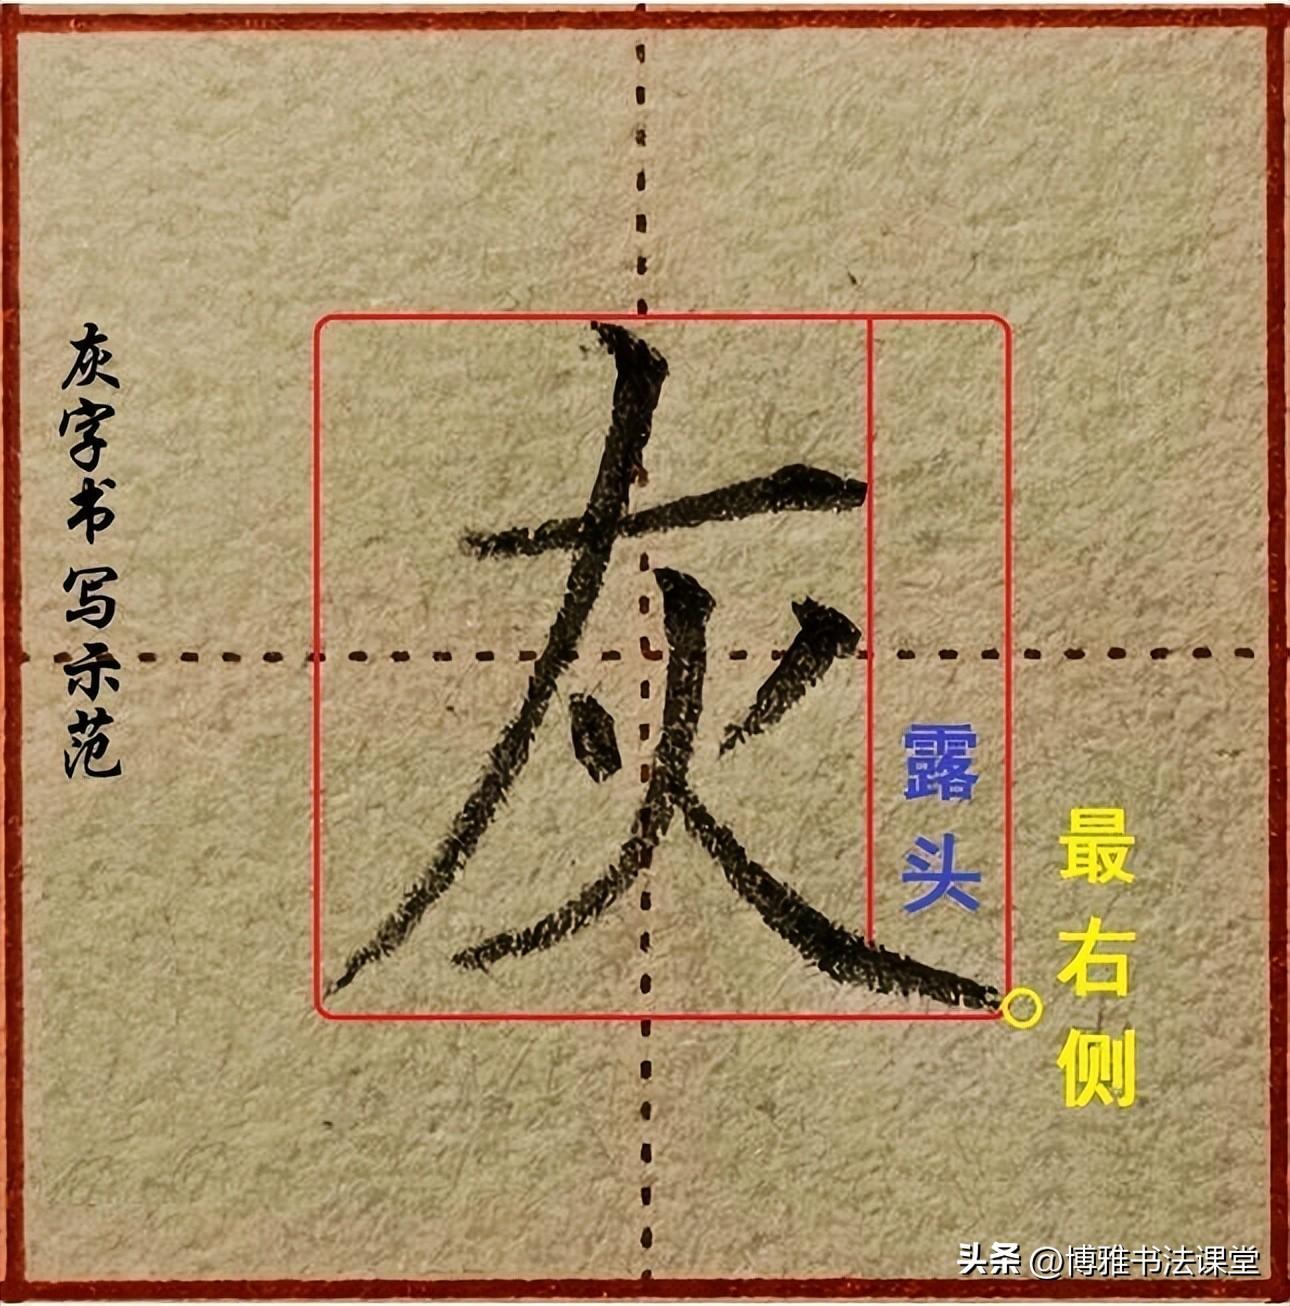 灰字书写示范
灰
露头
最右侧
头条 @博雅书法课堂